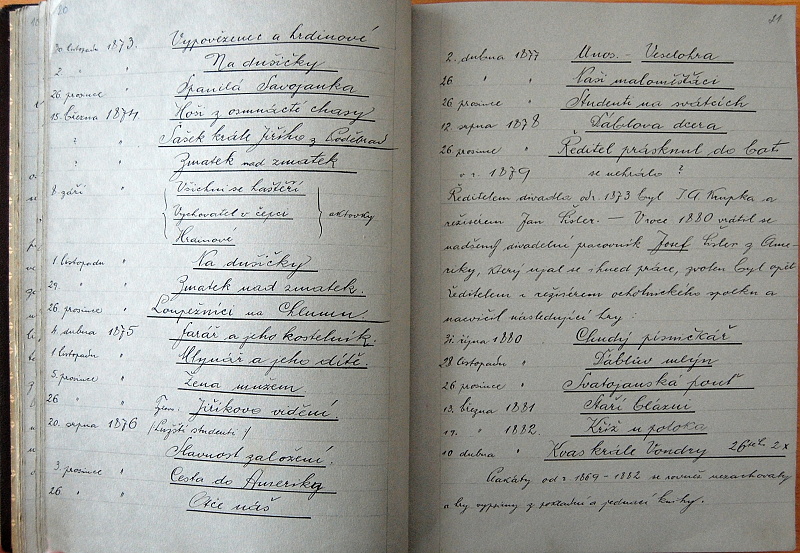 20
30 listopadu 1873. Vypovězenec a hrdinové
2 " " Na dušičky
26. prosince Spanilá Savojanka
15. března 1874 Hoši z osmnácté chasy
? " Šašek krále Jiřího z Poděbrad
? " Zmatek nad zmatek
8. září " Všichni se haštěří
Vychovatel v čepci aktovky
Hrdinové
1 listopadu " Na dušičky
29. " " Zmatek nad zmatek.
26. prosince " Loupežníci na Chlumu.
4. dubna 1875 Farář a jeho kostelník.
1 listopadu " Mlynář a jeho dítě.
5. prosince " Žena mužem
26 " " Jiříkovo vidění.
20. srpna 1876 / studenti /
Slavnost založení.
3. prosince " Cesta do Ameriky
26. " " Otče náš
21
2. dubna 1877 Únos. - Veselohra
26 " " Naši maloměšťáci
26 prosince " Studenti na svátcích
12. srpna 1878 Ďáblova dcera
26. prosince " Ředitel prásknul do bot.
v r. 1879 se nehrálo ?
Ředitelem divadla od r. 1873 byl J A Krupka a
režiserem Jan Šisler. — V roce 1880 vrátil se
nadšený divadelní pracovník Josef Šisler z Ame-
riky, který ujal se ihned práce, zvolen byl opět
ředitelem i režisérem ochotnického spolku a
nacvičil následující hry:
31. října 1880 Chudý písničkář
28 listopadu " Ďáblův mlýn
26 prosince " Svatojanská pouť
13. března 1881 Staří blázni
17. " 1882. Kříž u potoka
10 dubna " Kvas krále Vondry 26 2x
Plakáty od r. 1869-1882 se rovněž nezachovaly
a hry vypsány z pokladní a jednací knihy.